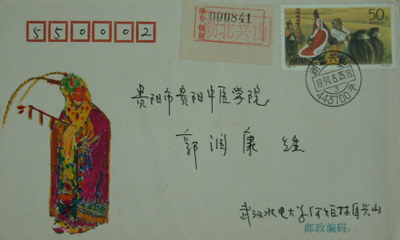 550002
000841
湖北兴山
50
1994.8.25.16
443700
贵阳市贵阳中医学院
郭润康 缄
武汉水电大学
兴山
邮政编码：